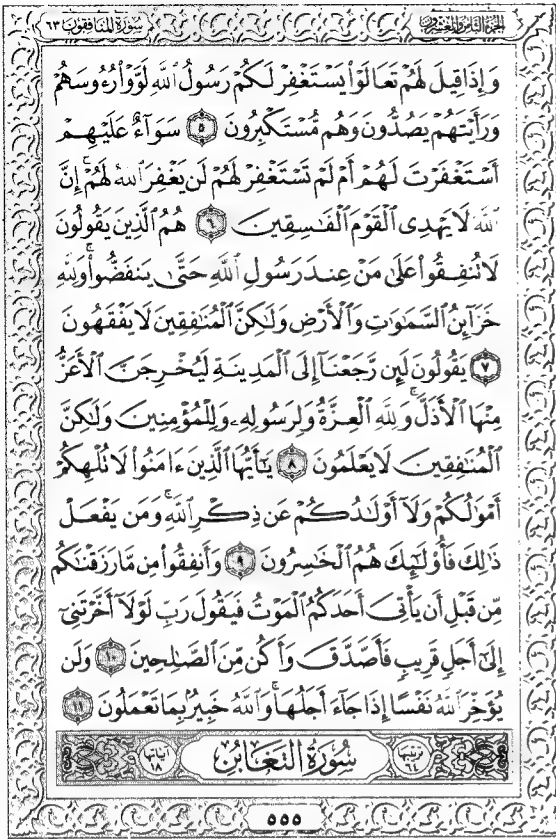 الجزء الثامن والعشرون سورة المنافقون ٦٣
وَإِذَا قِيلَ لَهُمْ تَعَالَوْا۟ يَسْتَغْفِرْ لَكُمْ رَسُولُ ٱللَّهِ لَوَّوْا۟ رُءُوسَهُمْ
وَرَأَيْتَهُمْ يَصُدُّونَ وَهُم مُّسْتَكْبِرُونَ ٥ سَوَآءٌ عَلَيْهِمْ
أَسْتَغْفَرْتَ لَهُمْ أَمْ لَمْ تَسْتَغْفِرْ لَهُمْ لَن يَغْفِرَ ٱللَّهُ لَهُمْ ۚ إِنَّ
ٱللَّهَ لَا يَهْدِى ٱلْقَوْمَ ٱلْفَـٰسِقِينَ ٦ هُمُ ٱلَّذِينَ يَقُولُونَ
لَا تُنفِقُوا۟ عَلَىٰ مَنْ عِندَ رَسُولِ ٱللَّهِ حَتَّىٰ يَنفَضُّوا۟ ۗ وَلِلَّهِ
خَزَآئِنُ ٱلسَّمَـٰوَٰتِ وَٱلْأَرْضِ وَلَـٰكِنَّ ٱلْمُنَـٰفِقِينَ لَا يَفْقَهُونَ
٧ يَقُولُونَ لَئِن رَّجَعْنَآ إِلَى ٱلْمَدِينَةِ لَيُخْرِجَنَّ ٱلْأَعَزُّ
مِنْهَا ٱلْأَذَلَّ ۚ وَلِلَّهِ ٱلْعِزَّةُ وَلِرَسُولِهِۦ وَلِلْمُؤْمِنِينَ وَلَـٰكِنَّ
ٱلْمُنَـٰفِقِينَ لَا يَعْلَمُونَ ٨ يَـٰٓأَيُّهَا ٱلَّذِينَ ءَامَنُوا۟ لَا تُلْهِكُمْ
أَمْوَٰلُكُمْ وَلَآ أَوْلَـٰدُكُمْ عَن ذِكْرِ ٱللَّهِ ۚ وَمَن يَفْعَلْ
ذَٰلِكَ فَأُو۟لَـٰٓئِكَ هُمُ ٱلْخَـٰسِرُونَ ٩ وَأَنفِقُوا۟ مِن مَّا رَزَقْنَـٰكُم
مِّن قَبْلِ أَن يَأْتِىَ أَحَدَكُمُ ٱلْمَوْتُ فَيَقُولَ رَبِّ لَوْلَآ أَخَّرْتَنِىٓ
إِلَىٰٓ أَجَلٍ قَرِيبٍ فَأَصَّدَّقَ وَأَكُن مِّنَ ٱلصَّـٰلِحِينَ ١٠ وَلَن
يُؤَخِّرَ ٱللَّهُ نَفْسًا إِذَا جَآءَ أَجَلُهَا ۚ وَٱللَّهُ خَبِيرٌۢ بِمَا تَعْمَلُونَ ١١
ترتيبها ٦٤ سُورَةُ التَّغَابُن آياتها ١٨
٥٥٥